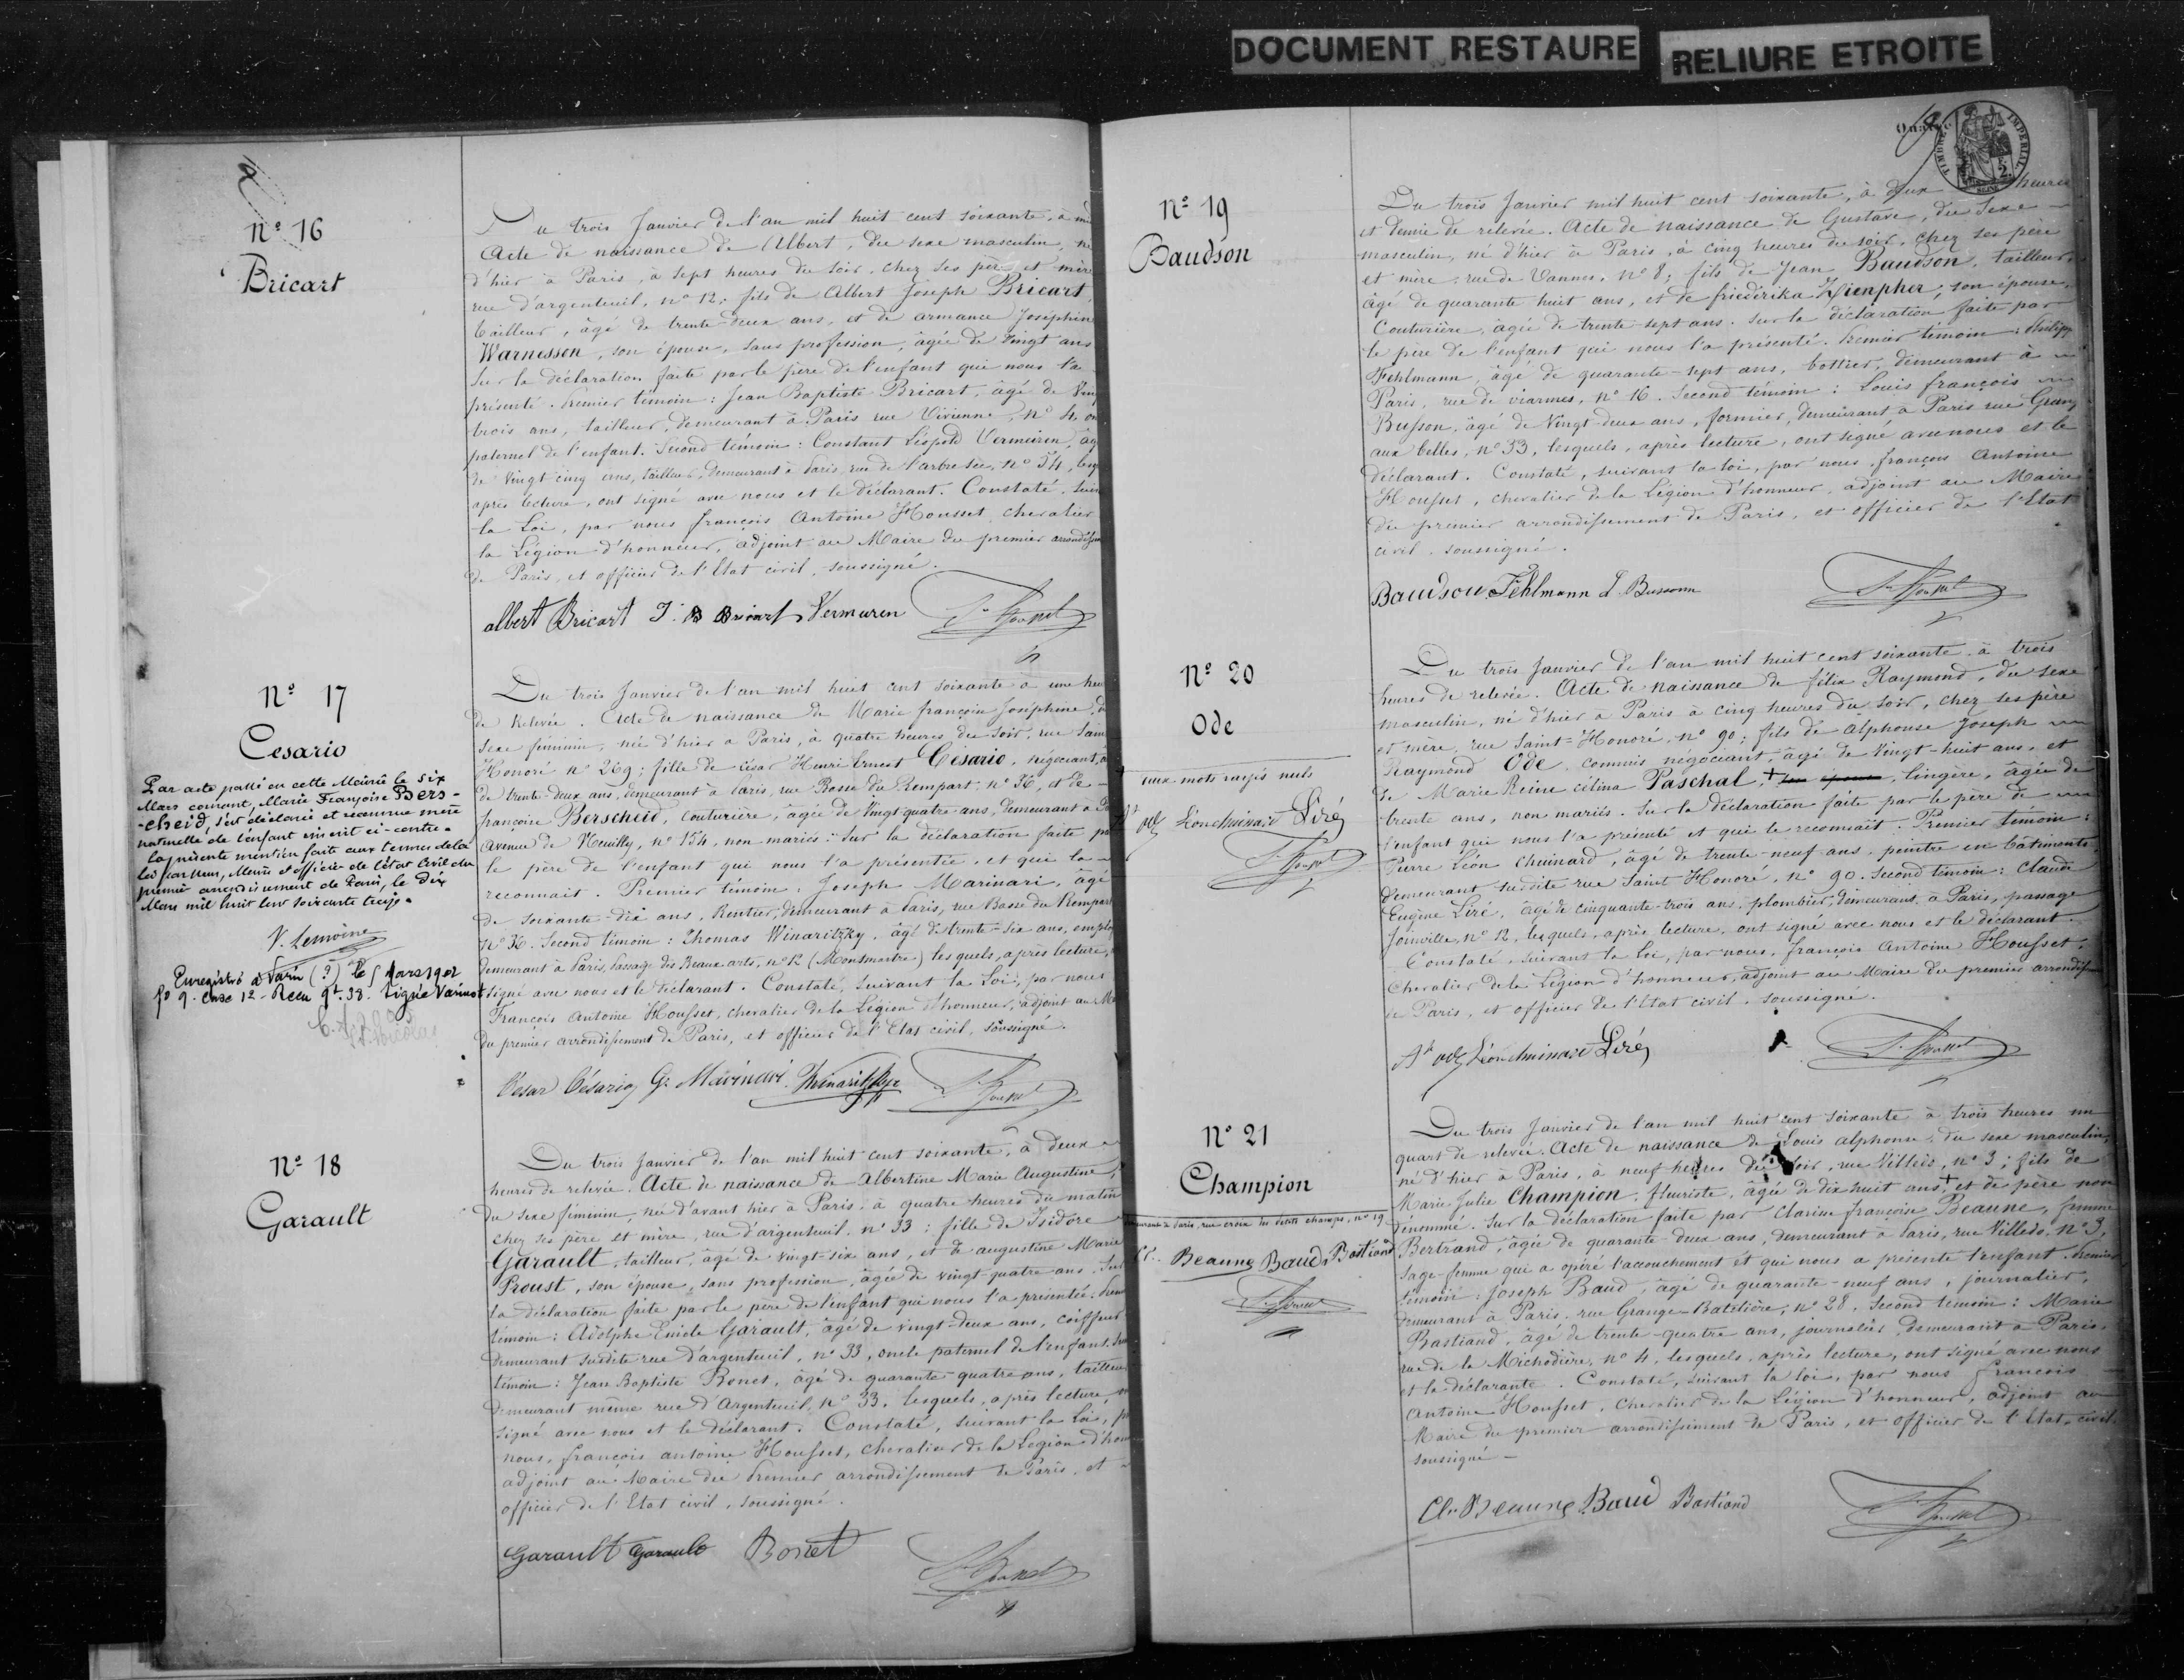 DOCUMENT RESTAURE
RELIURE ETROITE
nº 16
Bricart
Du trois Janvier de l'an mil huit cent soixante, à mi
Acte de naissance de Albert, du sexe masculin, né
d'hier à Paris, à sept heures du soir, chez ses père et mère
rue d'argenteuil, nº 12; fils de Albert Joseph Bricart,
tailleur, âgé de trente-deux ans, et de armance Joséphine
Warnesson, son épouse, sans profession, âgée de vingt ans
Sur la déclaration faite par le père de l'enfant qui nous l'a
présenté. Premier témoin: Jean Baptiste Bricart, âgé de Ving
trois ans, tailleur, demeurant à Paris rue Vivienne, nº 4, on
paternel de l'enfant. Second témoin: Constant Léopold Vermeiren, âg
de Vingt cinq ans, tailleur, demeurant à Paris, rue de l'arbre sec, nº 54, lesq
après lecture, ont signé avec nous et le déclarant. Constaté, suiv
la Loi, par nous françois Antoine Housset, chevalier
la Légion d'honneur, adjoint au Maire du premier arrondissem
de Paris, et officier de l'Etat civil, soussigné.
albert Bricart J. B Bricart Vermeiren
nº 17
Cesario
Par acte passé en cette Mairie le six
Mars courant, Marie Françoise Bers-
-cheid, s'est déclarée et reconnue mère
naturelle de l'enfant inscrit ci-contre.
la présente mention faite aux termes de la
loi par nous, Maire et officier de l'état Civil du
premier arrondissement de Paris, le dix
Mars mil huit cent soixante treize.
V. Lemoine
Enregistré à Paris (?) le 5 Mars 1902
fº 9. case 12 - Reçu 9f.38. Signé Varinot
Du trois Janvier de l'an mil huit cent soixante à une heu
de relevée. Acte de naissance de Marie françoise Joséphine, d
sexe féminin, née d'hier à Paris, à quatre heures du soir, rue Sain
Honoré nº 269; fille de César Henri Ernest Césario, négociant, â
de trente-deux ans, demeurant à Paris, rue Basse du Rempart, nº 36, et de
françoise Berscheid, couturière, âgée de Vingt quatre ans, demeurant à Pa
avenue de Neuilly, nº 154, non mariés. Sur la déclaration faite pa
le père de l'enfant qui nous l'a présentée, et qui la
reconnait. Premier témoin: Joseph Marinari, âgé
de soixante-dix ans, Rentier, demeurant à Paris, rue Basse du Rempart
Nº 36. Second témoin: Thomas Winaritzky, âgé de trente-six ans, employ
demeurant à Paris, Passage des Beaux arts, nº 12 (Montmartre) lesquels, après lecture,
signé avec nous et le déclarant. Constaté, suivant la Loi, par nous
François Antoine Housset, chevalier de la Légion d'honneur, adjoint au Ma
du premier arrondissement de Paris, et officier de l'Etat civil, soussigné.
César Césario G. Marinari. Winaritzky
nº 18
Garault
Du trois Janvier de l'an mil huit cent soixante, à deux
heures de relevée. Acte de naissance de Albertine Marie Augustine,
du sexe féminin, née d'avant hier à Paris, à quatre heures du matin
chez ses père et mère, rue d'argenteuil, nº 33; fille de Isidore
Garault, tailleur, âgé de vingt-six ans, et de augustine Marie
Proust, son épouse, sans profession, âgée de vingt-quatre ans. Sur
la déclaration faite par le père de l'enfant qui nous l'a présentée. Prem
témoin: Adolphe Emile Garault, âgé de vingt-deux ans, coiffeur
demeurant susdite rue d'argenteuil, nº 33, oncle paternel de l'enfant. Seco
témoin: Jean Baptiste Bonet, âgé de quarante-quatre ans, tailleur
demeurant même rue d'Argenteuil, nº 33, lesquels, après lecture,
signé avec nous et le déclarant. Constaté, suivant la Loi, p
nous, françois antoine Housset, chevalier de la Légion d'hon
adjoint au Maire du premier arrondissement de Paris, et
officier de l'Etat civil, soussigné.
Garault Garault Bonet
TIMBRE IMPERIAL
nº 19
Baudson
Du trois Janvier mil huit cent soixante, à deux heures
et demie de relevée. Acte de naissance de Gustave, du Sexe
masculin, né d'hier à Paris, à cinq heures du soir, chez ses père
et mère, rue de Vannes, nº 8; fils de Jean Baudson, tailleur,
âgé de quarante huit ans, et de friedérika Kienpher, son épouse,
Couturière, âgée de trente-sept ans. Sur la déclaration faite par
le père de l'enfant qui nous l'a présenté. Premier témoin: Philipp
Fehlmann, âgé de quarante-sept ans, bottier, demeurant à
Paris, rue de viarmes, nº 16. Second témoin: Louis françois
Busson, âgé de Vingt-deux ans, formier, demeurant à Paris rue Grang
aux belles, nº 33, lesquels, après lecture, ont signé avec nous et le
Déclarant. Constaté, suivant la loi, par nous, françois Antoine
Housset, chevalier de la Légion d'honneur, adjoint au Maire
du premier arrondissement de Paris, et officier de l'Etat
civil, soussigné.
Baudson Fehlmann L. Bussonn
nº 20
Ode
mots rayés nuls
Léon Chuinard Liré
Du trois Janvier de l'an mil huit cent soixante à trois
heures de relevée. Acte de naissance de félix Raymond, du sexe
masculin, né d'hier à Paris à cinq heures du soir, chez ses père
et mère, rue Saint-Honoré, nº 90; fils de Alphonse Joseph
Raymond Ode, commis négociant, âgé de vingt-huit ans, et
de Marie Reine célina Paschal, + son épouse, lingère, âgée de
trente ans, non mariés. Sur la déclaration faite par le père de
l'enfant qui nous l'a présenté et qui le reconnait. Premier témoin:
Pierre Léon Chuinard, âgé de trente-neuf ans, peintre en bâtiments
demeurant susdite rue Saint Honoré, nº 90. Second témoin: Claude
Eugène Liré, âgé de cinquante-trois ans, plombier, demeurant à Paris, passage
Joinville, nº 12, lesquels, après lecture, ont signé avec nous et le déclarant.
Constaté, suivant la loi, par nous, françois Antoine Housset,
Chevalier de la Légion d'honneur, adjoint au Maire du premier arrondissem
de Paris, et officier de l'Etat civil, soussigné.
Ode Léon Chuinard Liré
nº 21
Champion
demeurant à Paris, rue croix des petits champs, nº 19
Cl. Beaune Baud Bastiand
Du trois Janvier de l'an mil huit cent soixante à trois heures un
quart de relevée. Acte de naissance de Louis alphonse, du sexe masculin,
né d'hier à Paris, à neuf heures du soir, rue Villedo, nº 3; fils de
Marie Julie Champion, fleuriste, âgée de dix huit ans, + et de père non
dénommé. Sur la déclaration faite par Clarisse françoise Beaune, femme
Bertrand, âgée de quarante-deux ans, demeurant à Paris, rue Villedo, nº 3,
sage-femme qui a opéré l'accouchement et qui nous a présenté l'enfant. Premier
témoin: Joseph Baud, âgé de quarante-neuf ans, journalier,
demeurant à Paris, rue Grange-Batelière, nº 28. Second témoin: Marie
Bastiand, âgé de trente-quatre ans, journalier, demeurant à Paris,
rue de la Michodière, nº 4, lesquels, après lecture, ont signé avec nous
et la déclarante. Constaté, suivant la loi, par nous françois
Antoine Housset, chevalier de la Légion d'honneur, adjoint au
Maire du premier arrondissement de Paris, et officier de l'Etat civil.
soussigné
Cl. Beaune Baud Bastiand